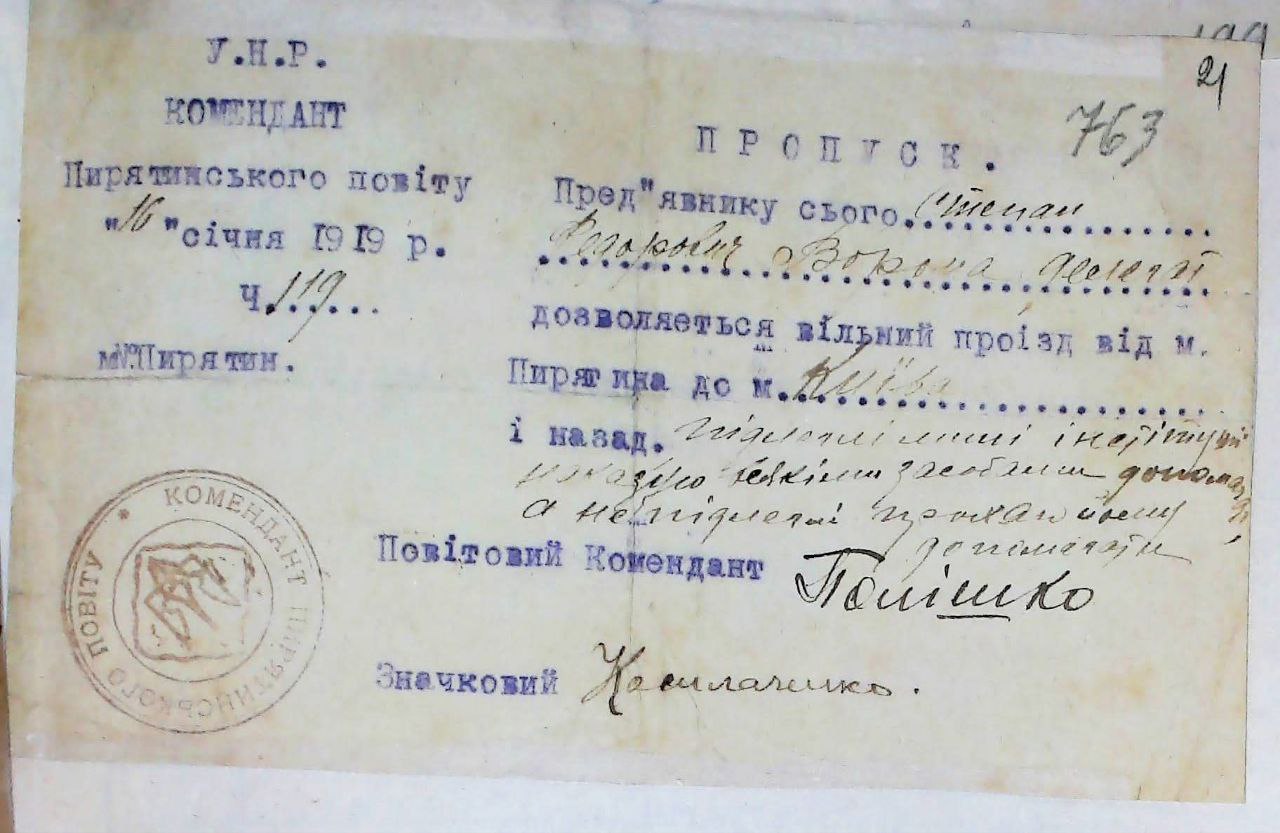 У.Н.Р.
КОМЕНДАНТ
Пирятинського повіту
"16"січня 1919 р.
Ч.119....
м.Пирятин.
21
763
ПРОПУСК.
Пред"явнику сього..Степан
Ворона
дозволяеться вільний проїзд від м.
Пирятина до м.Київа
і назад. Підлеглі мині інстітуції
наказую всякіми засобами допомагати,
а непідлеглі прохаю йому
допомагати
Повітовий Комендант Полішко
Значковий
КОМЕНДАНТ ПИРЯТИНСЬКОГО ПОВІТУ